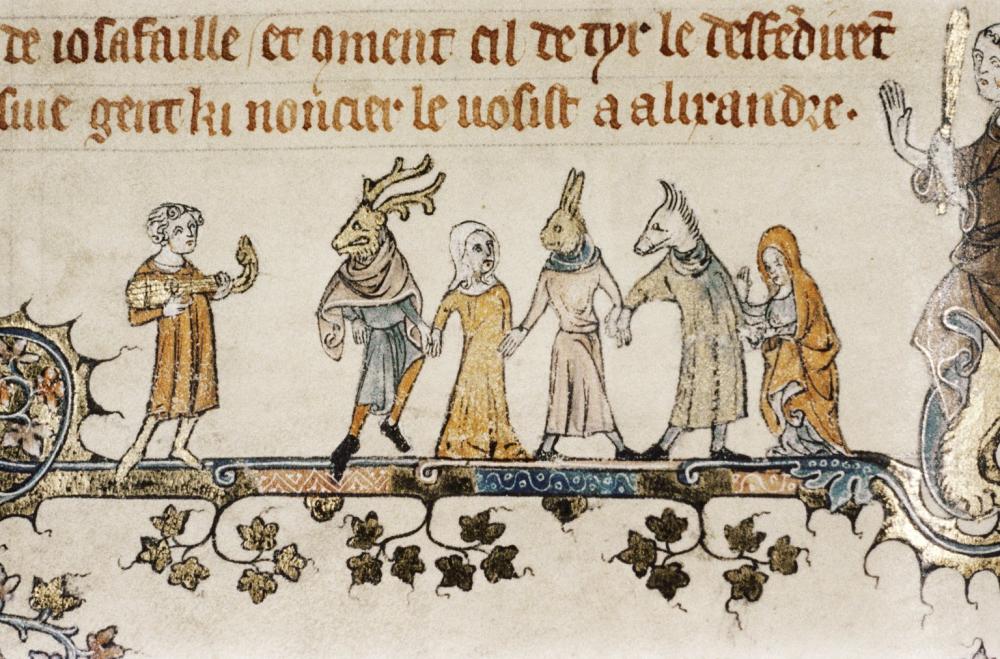 de iosafaille / et ꝯment cil de tyr le deffēdirēt
siue gent ki noncier le uosist a alixandre.